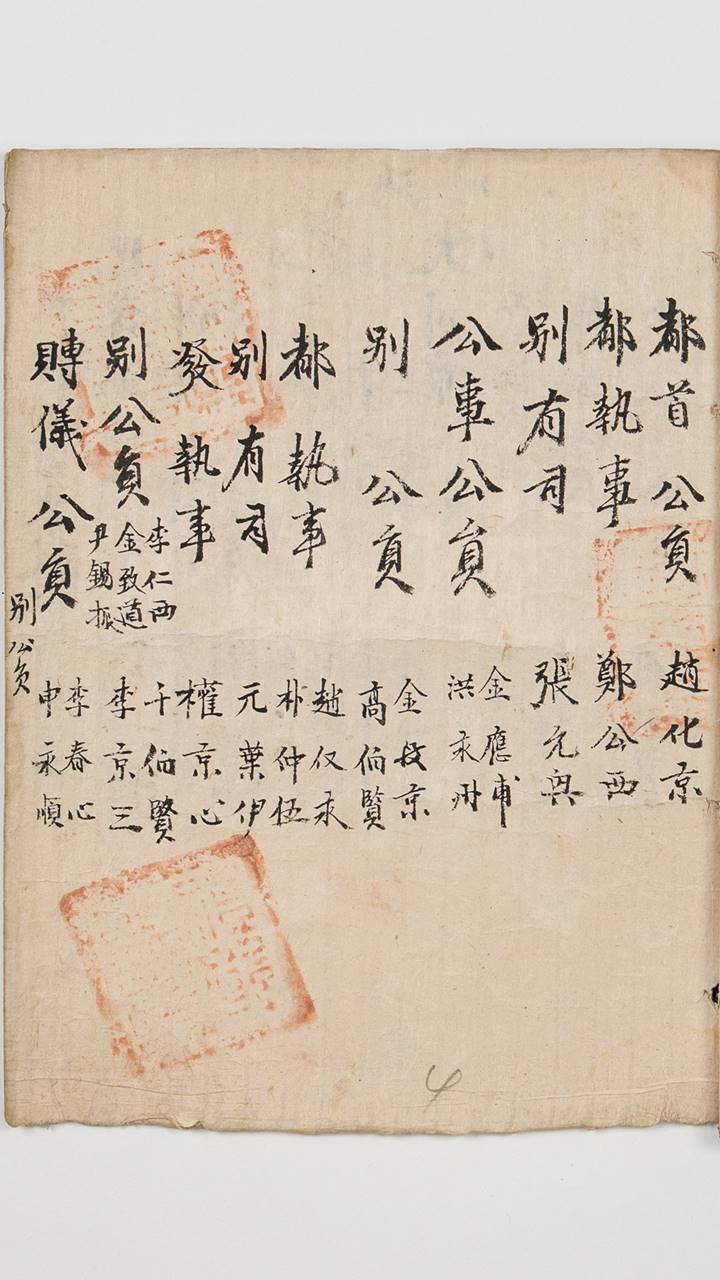 都首公員 趙化京
都執事 鄭公西
別有司 張允興
公事公員 金應甫
洪永州
別公員 金敬京
高伯賢
都執事 趙仅永
朴仲伍
別有司 元葉伊
發執事 權京心
千伯賢
別公員 李仁西
金致道
尹錫振
李京三
賻儀公員 李春心
申永順
別公員
4